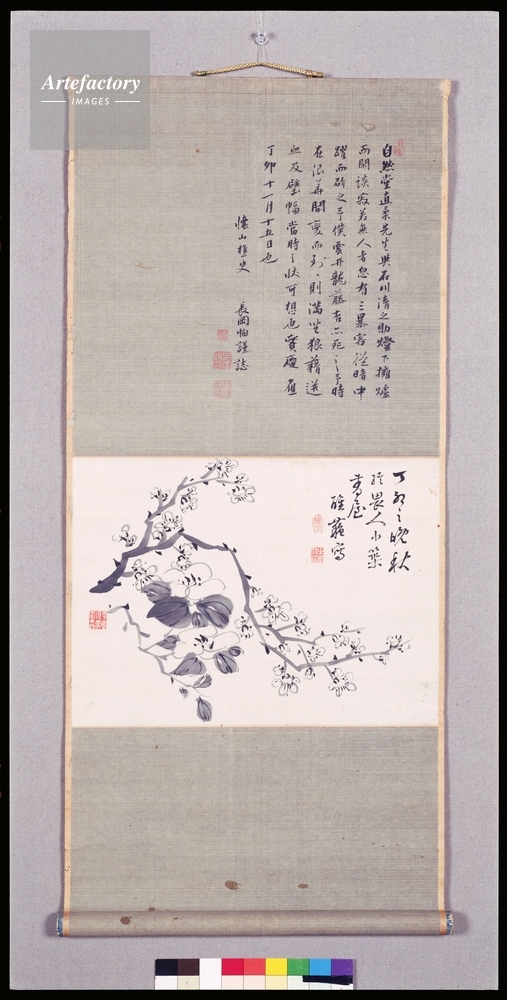 Artefactory
IMAGES
自然堂直柔先生與石川清之助燈下擁爐
而閑談寂若無人者忽有三暴客從暗中
躍而斫之予僕雲井龍藤吉亦死之予時
在浪華聞變而到〻則滿坐狼藉迸
血及壁幅當時之状可想也實慶應
丁卯十一月十五日也
懐山樵史 長岡恂謹誌
丁卯之晩秋
於畏人小築
寫